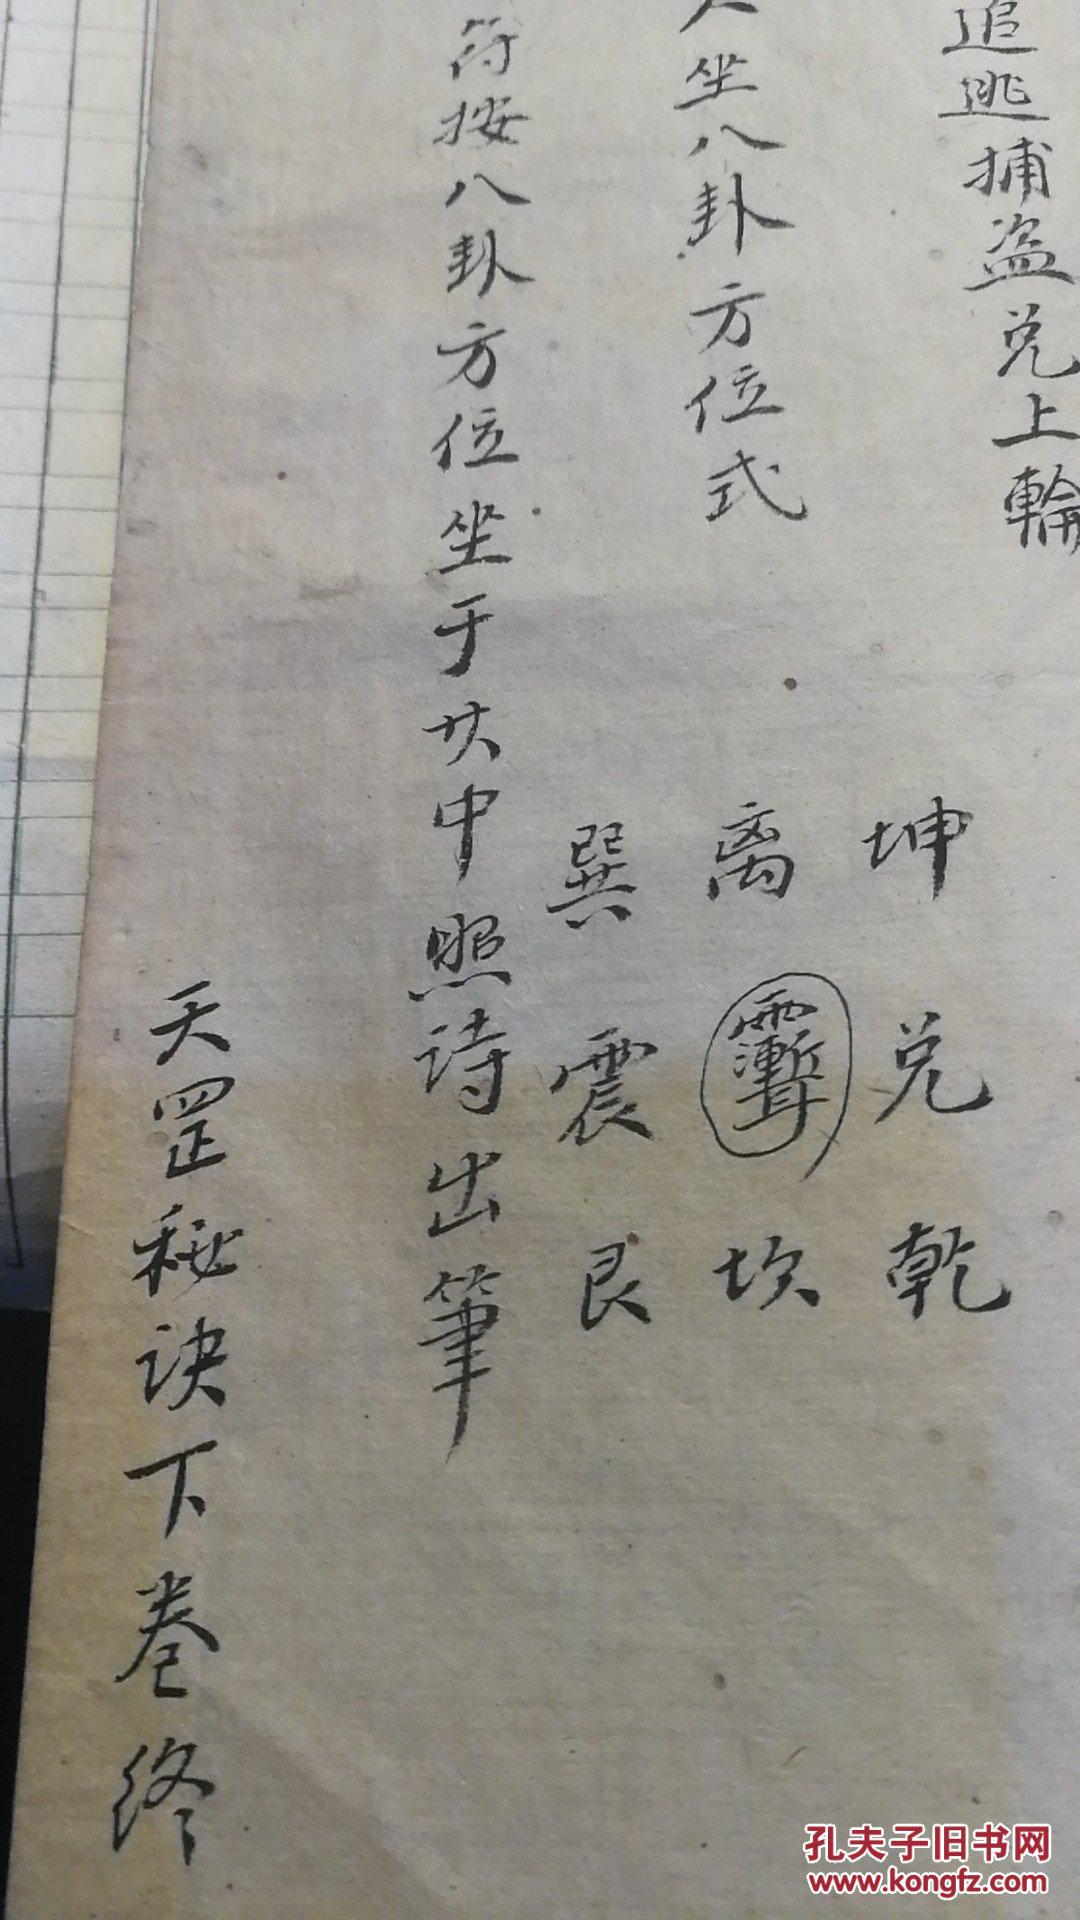 追逃捕盗兑上輪
人坐八卦方位式
坤 兑 乾
离 坎
巽 震 艮
符按八卦方位坐于其中照诗出筆
天罡秘诀下卷终
孔夫子旧书网
www.kongfz.com